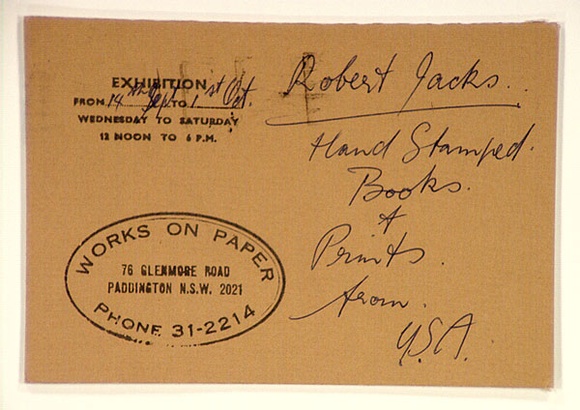 EXHIBITION
FROM 14th Sept TO 1st Oct.
WEDNESDAY TO SATURDAY
12 NOON TO 6 P.M.
WORKS ON PAPER
76 GLENMORE ROAD
PADDINGTON N.S.W. 2021
PHONE 31-2214
Robert Jacks.
Hand Stamped.
Books.
&
Prints.
from.
USA.